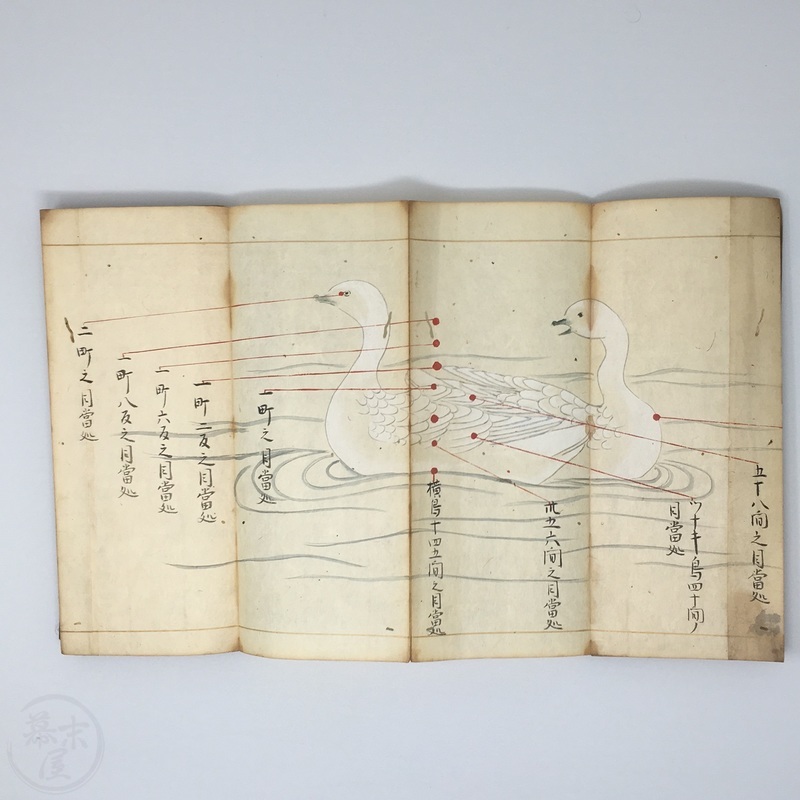 五十八間之目當処
ツナキ鳥四十間ノ
目當処
卅五六間之目當処
横鳥十四五間之目當処
一町之目當処
一町二反之目當処
一町六反之目當処
一町八反之目當処
二町之目當処
幕末屋